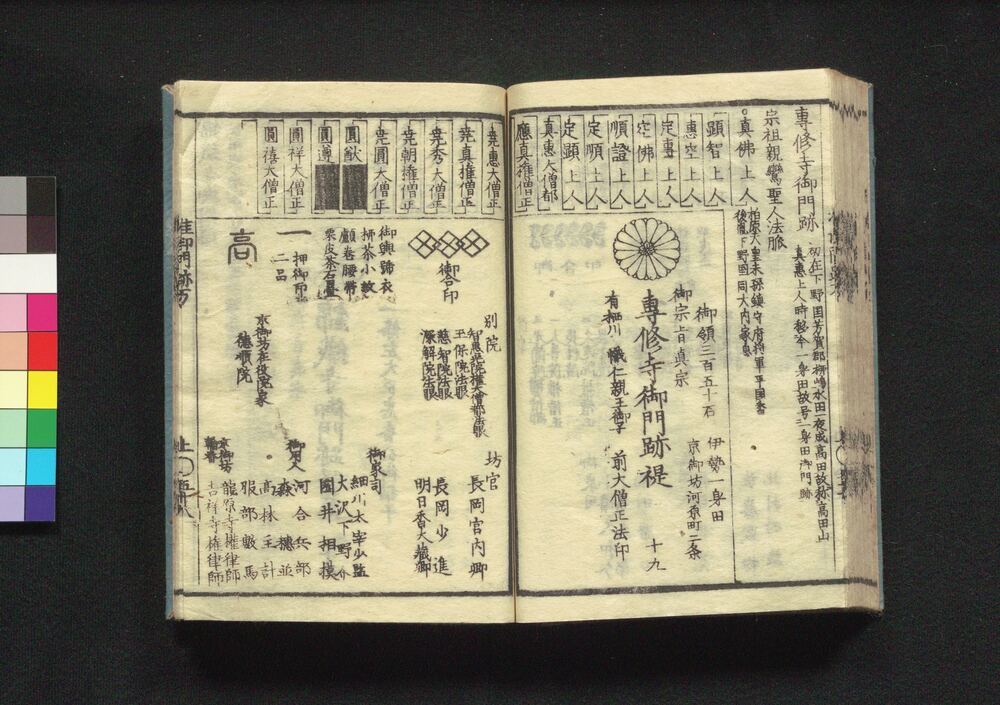 專修寺御門跡
初在下野国芳賀郡柳嶋水田一夜成高田故称高田山
真惠上人時移今一身田故号一身田御門跡
宗祖親鸞聖人法脈
真佛上人
柏原天皇末孫鎮守府将軍平国香
後胤下野国同大内
顕智上人
惠空上人
定專上人
空佛上人
順證上人
定順上人
定顕上人
真惠大僧都
應真権僧正
御領三百五十石
伊勢一身田
京御坊河原町二条
御宗旨真宗
專修寺御門跡禔
十九
有栖川
熾仁親王御子
前大僧正法印
尭惠大僧正
尭真権僧正
尭秀大僧正
尭朝権僧正
尭圓大僧正
圓猷
圓遵
圓祥大僧正
圓禧大僧正
御合印
別院
智惠光院権大僧都法眼
玉保院法眼
慈智院法眼
深解院法眼
坊官
長岡宮内卿
長岡少進
明日香大蔵卿
御輿
栗皮茶
押御印
二品
高
御家司
細川太宰少監
大沢下野介
園井相摸
御用人
河合兵部
森穂並
高林主計
服部數馬
京御坊在役院家
徳順院
京御坊
輪番
龍源寺権律師
吉祥寺権律師
准御門跡方
上